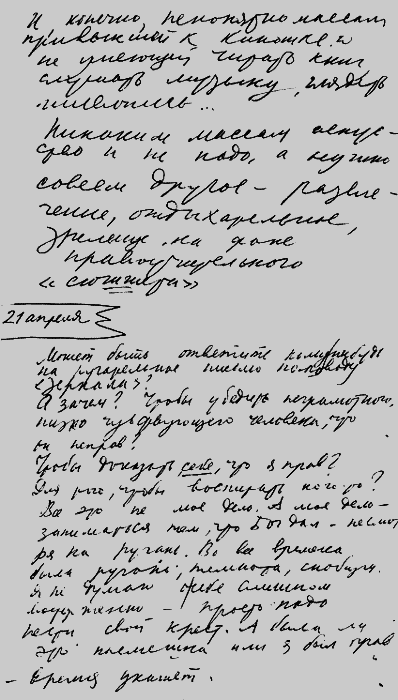 И, конечно, непонятно массам,
привыкшей к киношке и
не умеющим читать книг,
слушать музыку, глядеть
живопись...
Никаким массам искус-
ство и не надо, а нужно
совсем другое – развле-
чение, отдыхательное,
зрелище на фоне
нравоучительного
«сюжета»
21 апреля
Может быть ответите кому-нибудь
на ругательное письмо по поводу
«Зеркала»?
А зачем? Чтобы убедить неграмотного,
низко чувствующего человека, что
он неправ?
Чтобы доказать себе, что я прав?
Для того, чтобы воспитать кого-то?
Все это не мое дело. А мое дело –
заниматься тем, что Бог дал – несмот-
ря на ругань. Во все времена
была ругань, темнота, снобизм.
Я не думаю о себе слишком
– просто надо
нести свой крест. А была ли
это насмешка или я был прав
– время укажет.